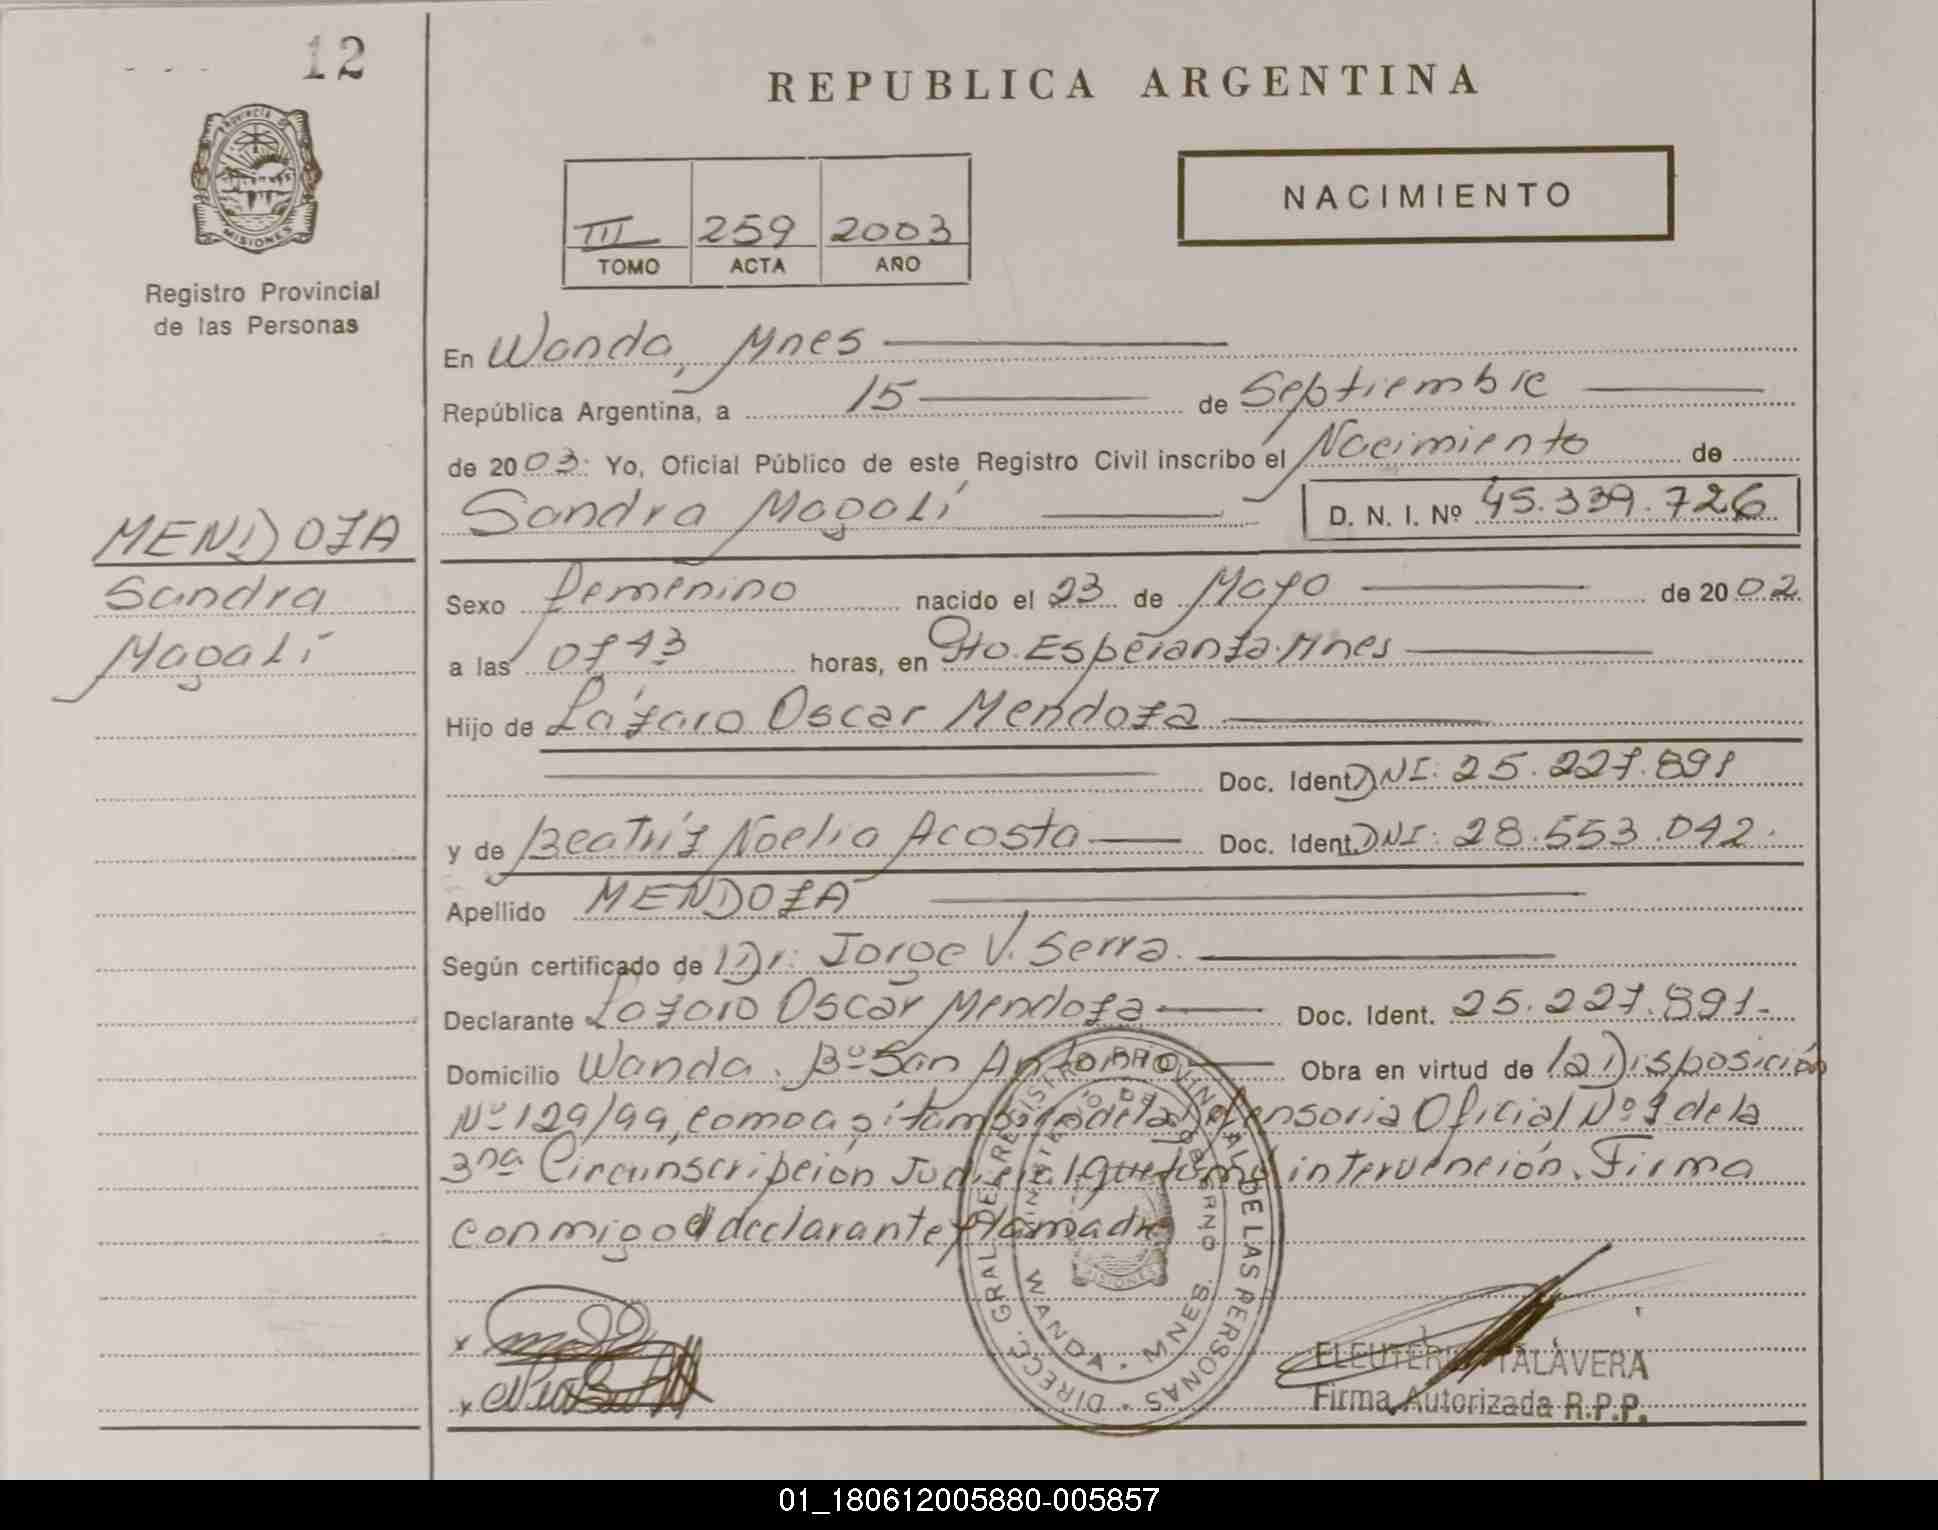 12
REPUBLICA ARGENTINA
NACIMIENTO
III 259 2003
TOMO ACTA AÑO
PROVINCIA DE MISIONES
Registro Provincial
de las Personas
En Wanda, Mnes
República Argentina, a 15 de Septiembre
de 2003. Yo, Oficial Público de este Registro Civil inscribo el Nacimiento de
Sandra Magalí D. N. I. Nº 45.339.726
MENDOZA
Sandra
Magalí
Sexo Femenino nacido el 23 de Mayo de 2002
a las horas, en Pto. Esperanza. Mnes
Hijo de Lázaro Oscar Mendoza
Doc. Ident. DNI: 25.227.891
y de Beatriz Noelia Acosta Doc. Ident. DNI: 28.553.042.
Apellido MENDOZA
Según certificado de Dr. Jorge V. Serra.
Declarante Lazaro Oscar Mendoza Doc. Ident. 25.227.891.-
Domicilio Wanda. Bº San Antonio Obra en virtud de la Disposición
Nº 129/99, como así también de la Defensoria Oficial Nº 1 de la
3ra Circunscripción Judicial que tomó intervención. Firma
conmigo el declarante y la madre
DIRECC. GRAL. DE REGISTRO PROVINCIAL DE LAS PERSONAS
MINISTERIO DE GOBIERNO
WANDA - MNES.
MISIONES
ELEUTERIO TALAVERA
Firma Autorizada R.P.P.
01_180612005880-005857